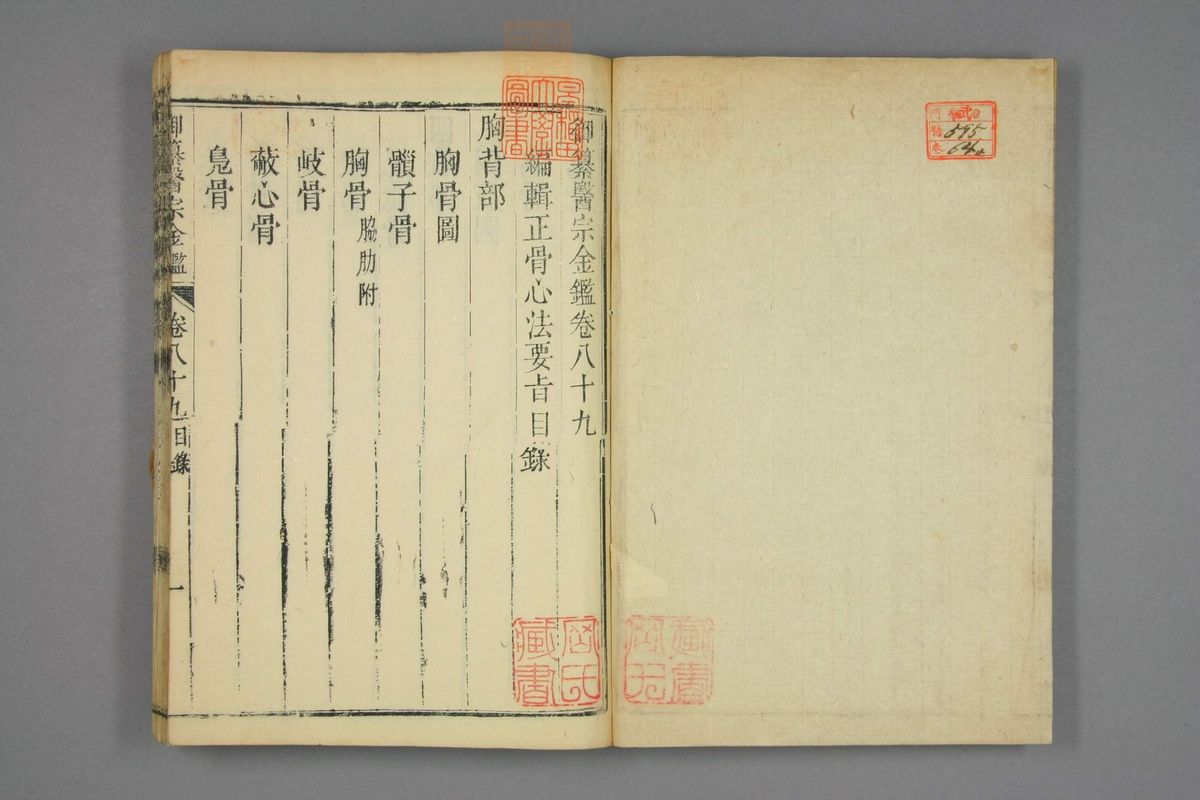 御纂醫宗金鑑卷八十九
編輯正骨心法要㫖目錄
胸背部
胸骨圖
髃子骨
胸骨 脇肋附
岐骨
蔽心骨
鳬骨
御纂醫宗金鑑 卷八十九目錄 一
圖書
藏書
595